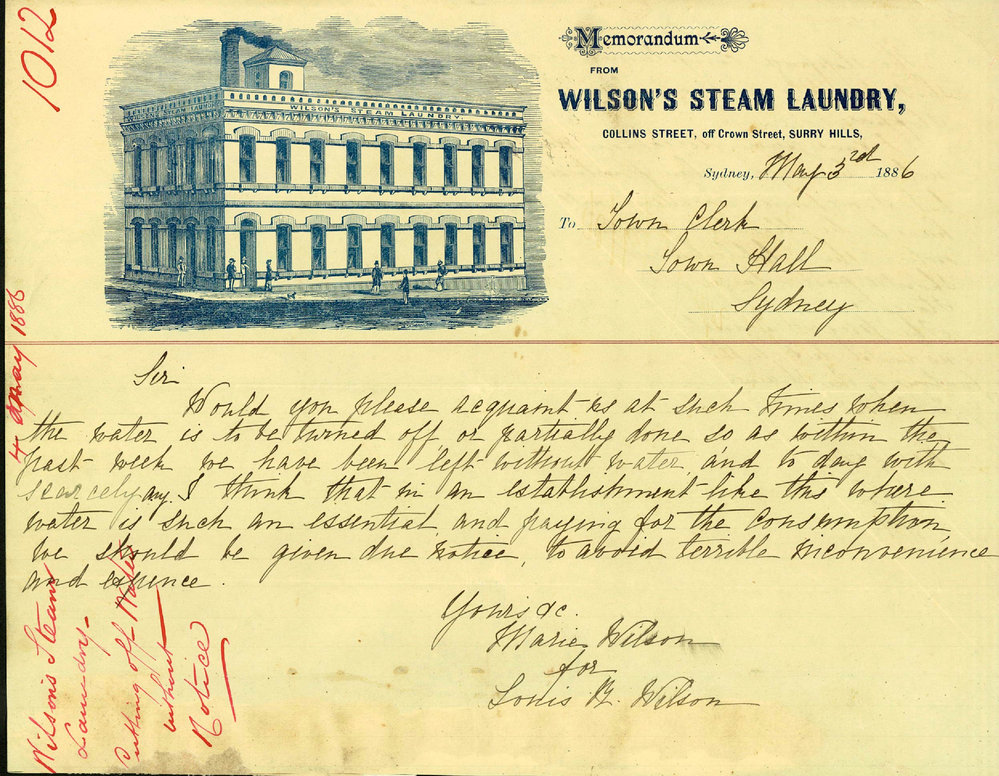 1012
WILSON'S STEAM LAUNDRY
WILSON'S STEAM LAUNDRY.
Memorandum
FROM
WILSON'S STEAM LAUNDRY,
COLLINS STREET, off Crown Street, SURRY HILLS,
Sydney, May 3rd 1886
To Town Clerk
Town Hall
Sydney
Sir
Would you please acquaint us at such times when
the water is to be turned off or partially done so as within the
past week we have been left without water, and to day with
scarcely any. I think that in an establishment like this where
water is such an essential and paying for the consumption
we should be given due notice, to avoid terrible inconvenience
and expence.
Yours &c.
Marie Wilson
for
Louis B. Wilson
4 May 1886
Wilson's Steam
Laundry -
Cutting off Water
without
Notice